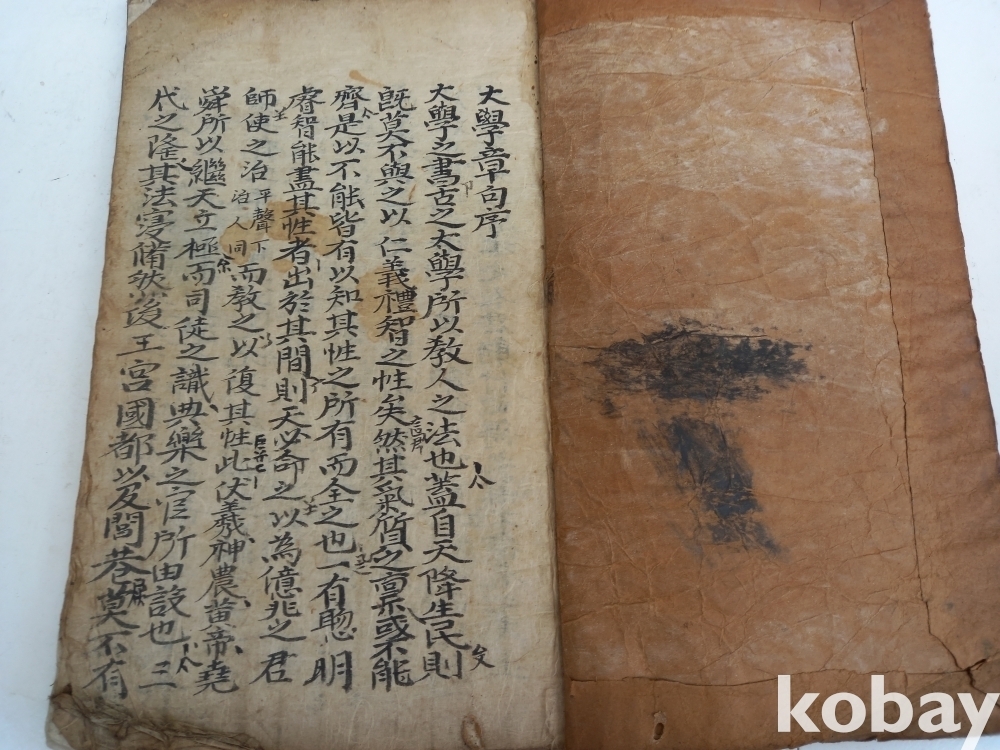 大學章句序
大學之書古之太學所以教人之法也蓋自天降生民則
既莫不與之以仁義禮智之性矣然其氣質之稟或不能
齊是以不能皆有以知其性之所有而全之也一有聰明
睿智能盡其性者出於其間則天必命之以為億兆之君
師使之治平聲下治人同而教之以復其性此伏羲神農黃帝堯
舜所以繼天立極而司徒之識典樂之官所由設也三
代之隆其法寖備然後王宮國都以及閭巷莫不有
kobay